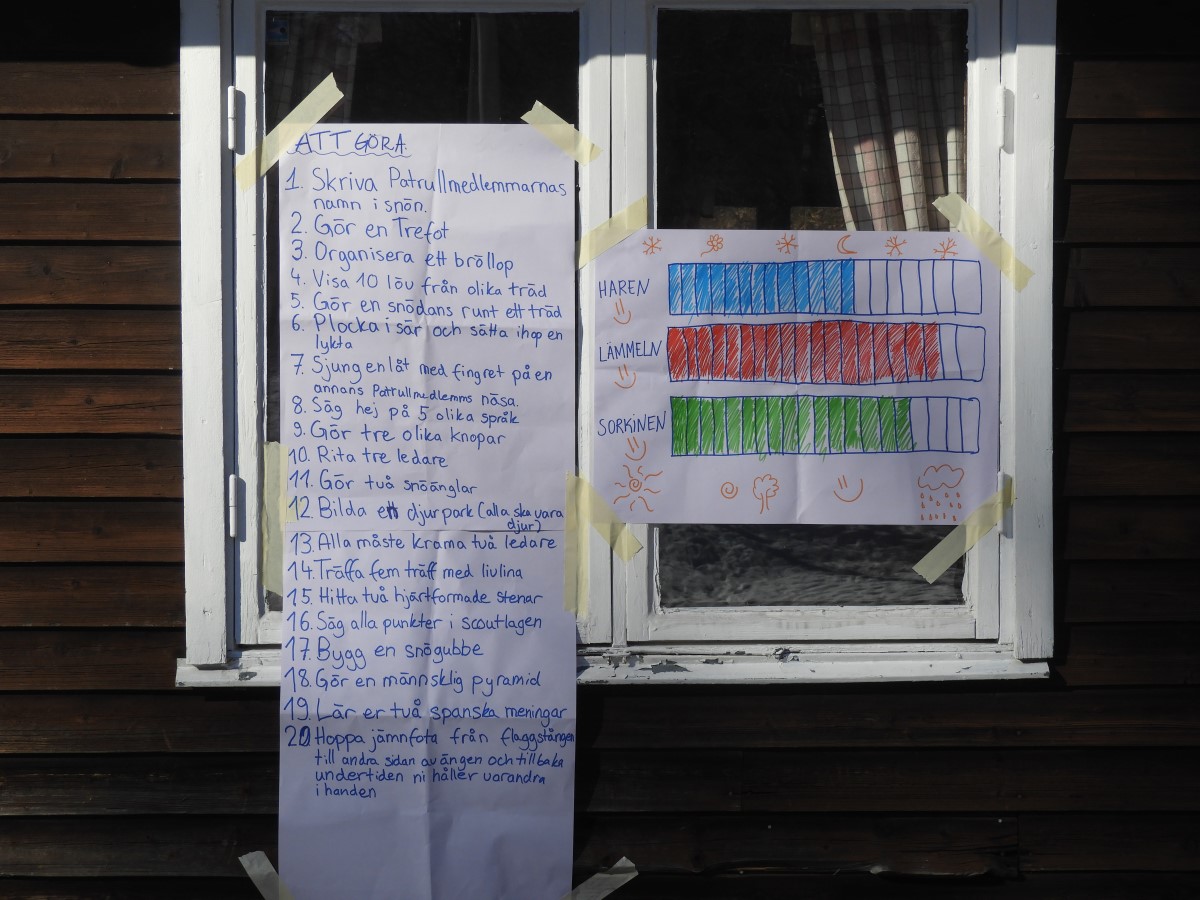 ATT GÖRA
1. Skriva Patrullmedlemmarnas
namn i snön.
2. Gör en Trefot
3. Organisera ett bröllop
4. Visa 10 löv från olika träd
5. Gör en snödans runt ett träd
6. Plocka isär och sätta ihop en
lykta
7. Sjung en låt med fingret på en
annans Patrullmedlemms näsa.
8. Säg hej på 5 olika språk
9. Gör tre olika knopar
10. Rita tre ledare
11. Gör två snöänglar
12. Bilda ett djurpark (alla ska vara
djur)
13. Alla måste krama två ledare
14. Träffa fem träff med livlina
15. Hitta två hjärtformade stenar
16. Säg alla punkter i scoutlagen
17. Bygg en snögubbe
18. Gör en männsklig pyramid
19. Lär er två spanska meningar
20 Hoppa jämnfota från flaggstången
till andra sidan av ängen och tillbaka
undertiden ni håller varandra
i handen
HAREN
LÄMMELN
SORKINEN